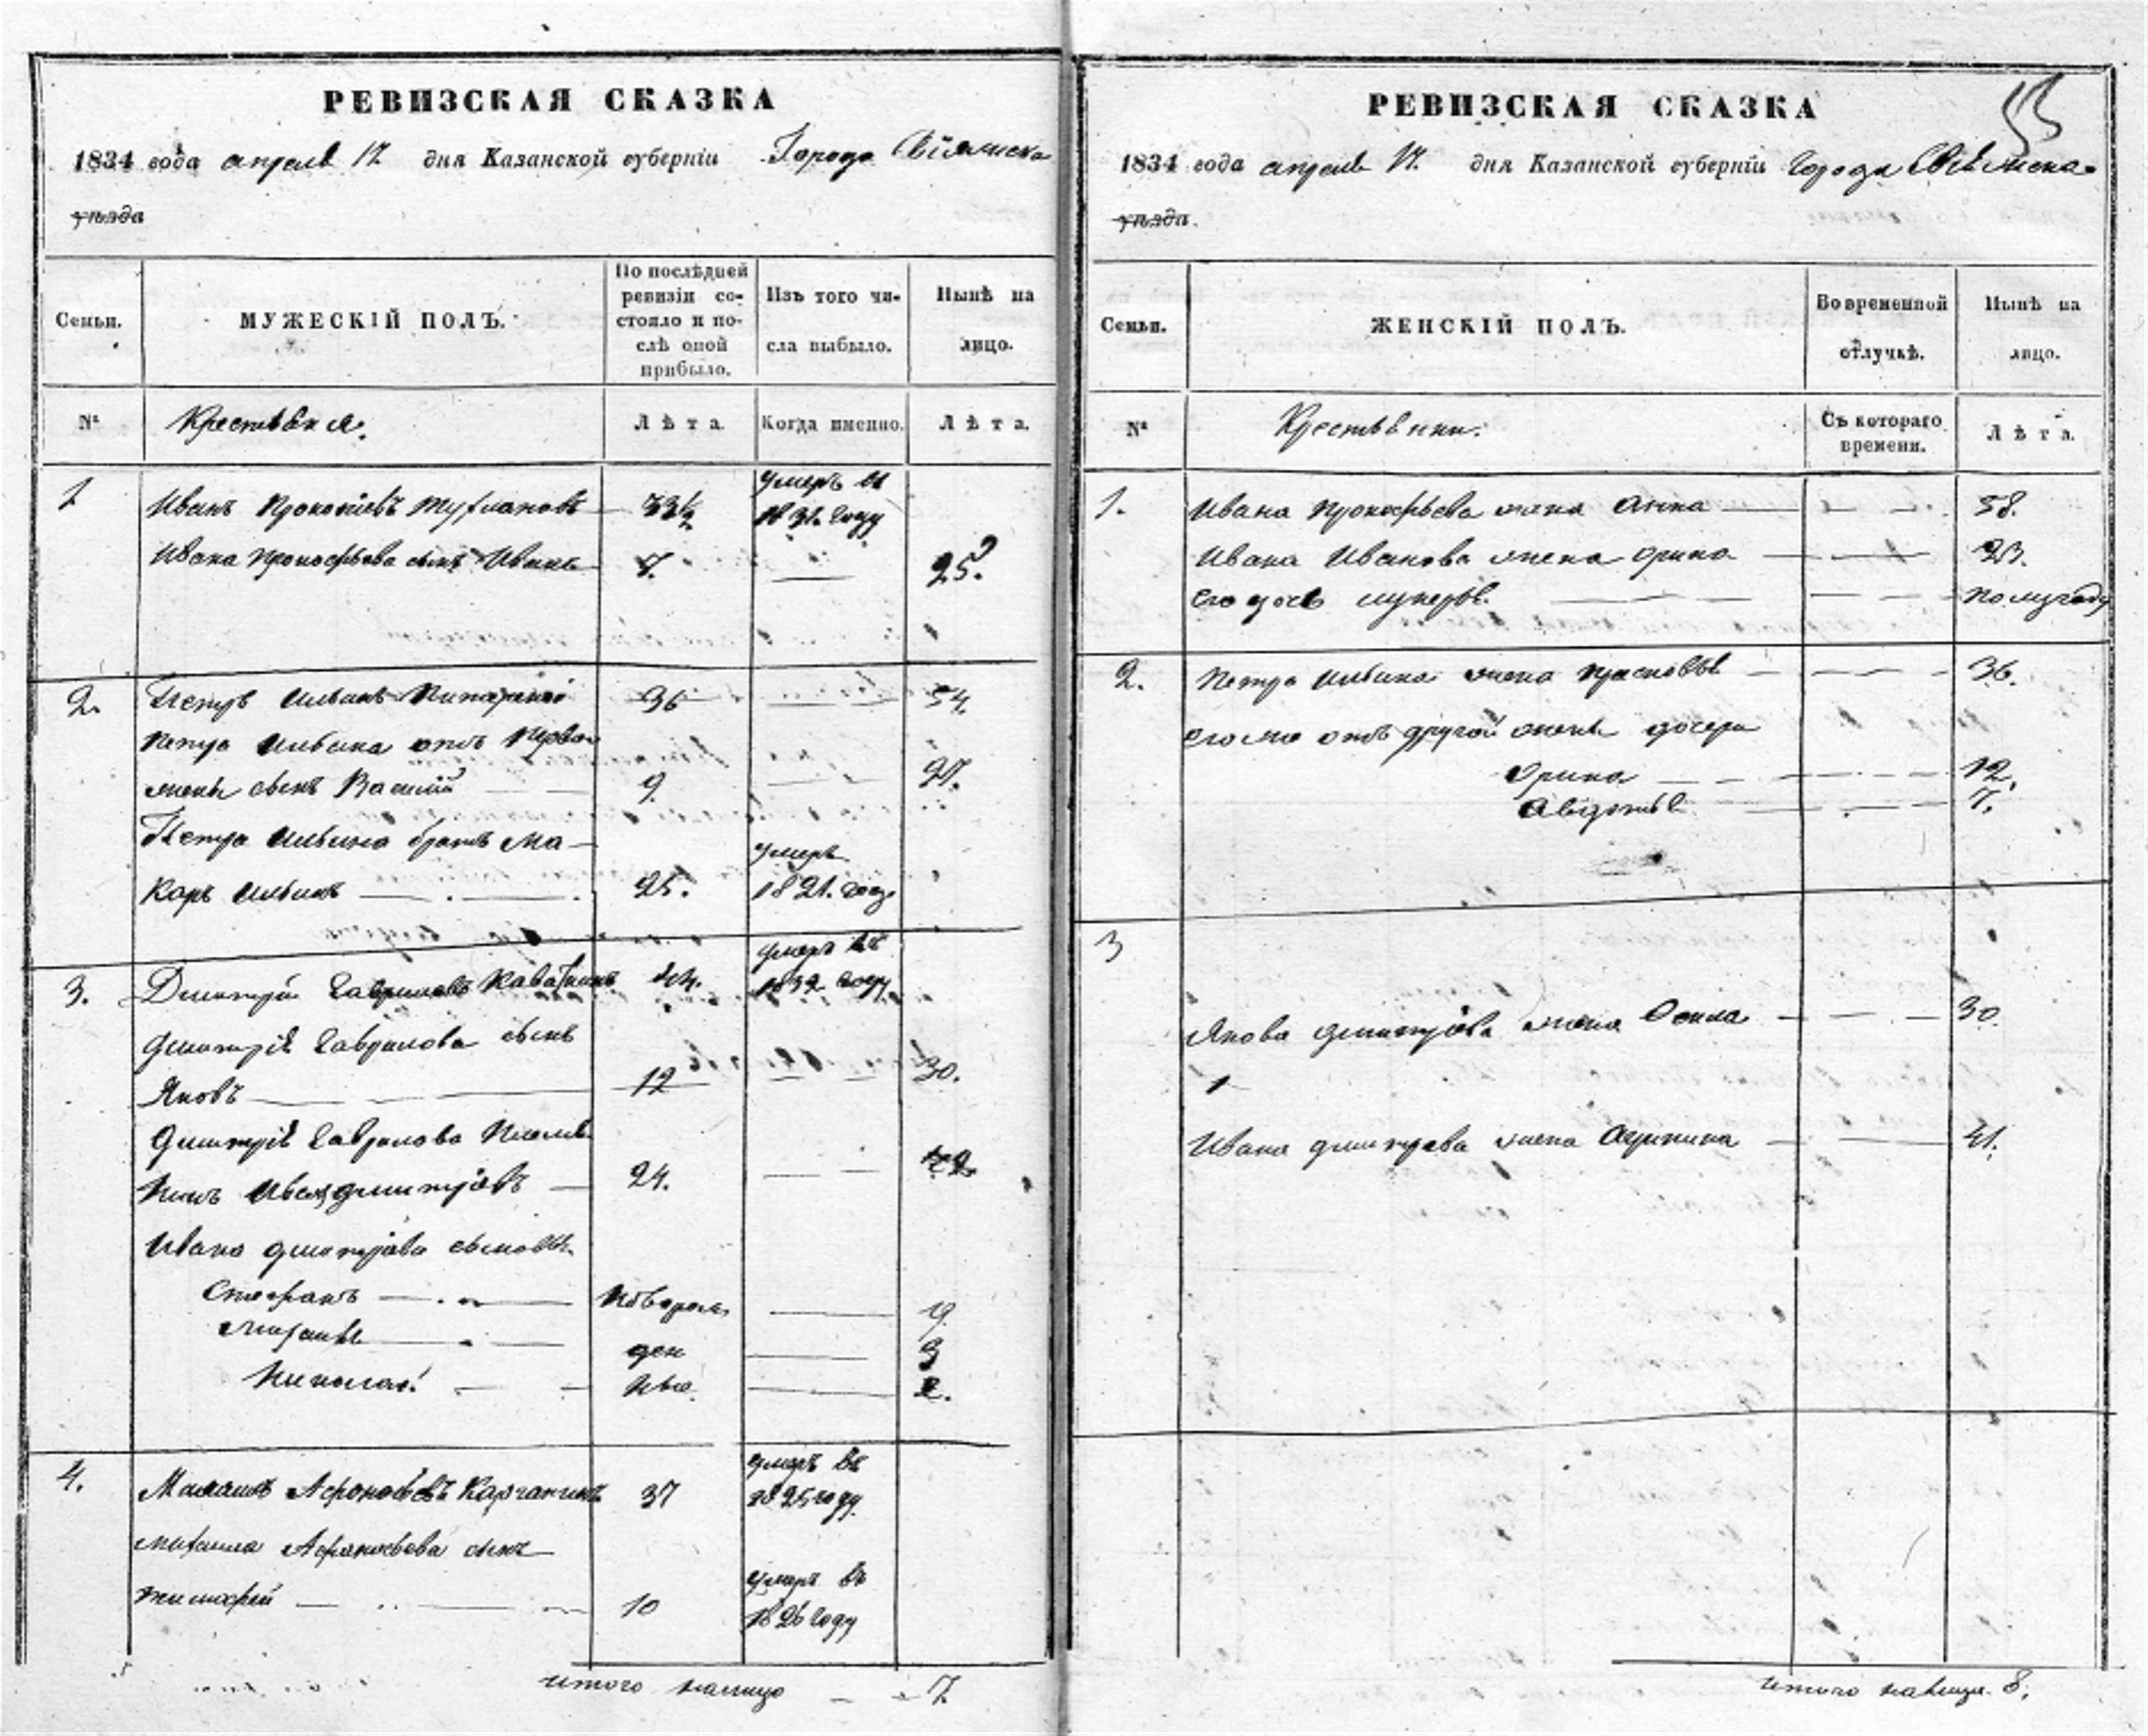 РЕВИЗСКАЯ СКАЗКА
1834 года апреля 17 дня Казанской губерніи Города Свіяжска
уѣзда
Семьи.
МУЖЕСКІЙ ПОЛЪ.
По послѣдней
ревизіи со-
стояло и по-
слѣ оной
прибыло.
Изъ того чи-
сла выбыло.
Нынѣ на
лицо.
№
Крестьяня.
Лѣта.
Когда именно.
Лѣта.
1
Иванъ Прокопіевъ
умеръ
въ 1831. году
Ивана Прокофьева сынъ Иванъ 7. 25.
2. Петръ Ильинъ 36 54.
Петра Ильина отъ первой
жены сынъ Василій 9. 27.
Петра Ильина братъ Ма-
каръ Ильинъ 25.
умеръ
1821. году
3. Дмитрій Гавриловъ 44.
умеръ въ
1832 году
Дмитрія Гаврилова сынъ
Яковъ 12 30.
Дмитрія Гаврилова племян-
никъ Иванъ Дмитріевъ 24. 42.
Ивана Дмитріева сыновья
Стефанъ новорож 9
Михаила ден 3
Николай ные 2.
4. Афонасьевъ 37
умеръ въ
1825 году
Михаила Афонасьева сынъ
Тимофей 10
умеръ въ
1826 году
Итого налицо 7
РЕВИЗСКАЯ СКАЗКА
53
1834 года апреля 17. дня Казанской губерніи Города Свіяжска
уѣзда
Семьи.
ЖЕНСКІЙ ПОЛЪ.
Во временной
отлучкѣ.
Нынѣ на
лицо.
№
Крестьянки.
Съ котораго
времени.
Лѣта.
1. Ивана Прокофьева жена Анна 58.
Ивана Иванова жена Орина 23.
его дочь Лукерья. полугоду
2. Петра Ильина жена Прасковья 36.
его же отъ другой жены дочери
Орина 12.
Авдотья 7.
3
Якова Дмитріева жена 30.
Ивана Дмитрева жена 41.
Итого налицо 8.